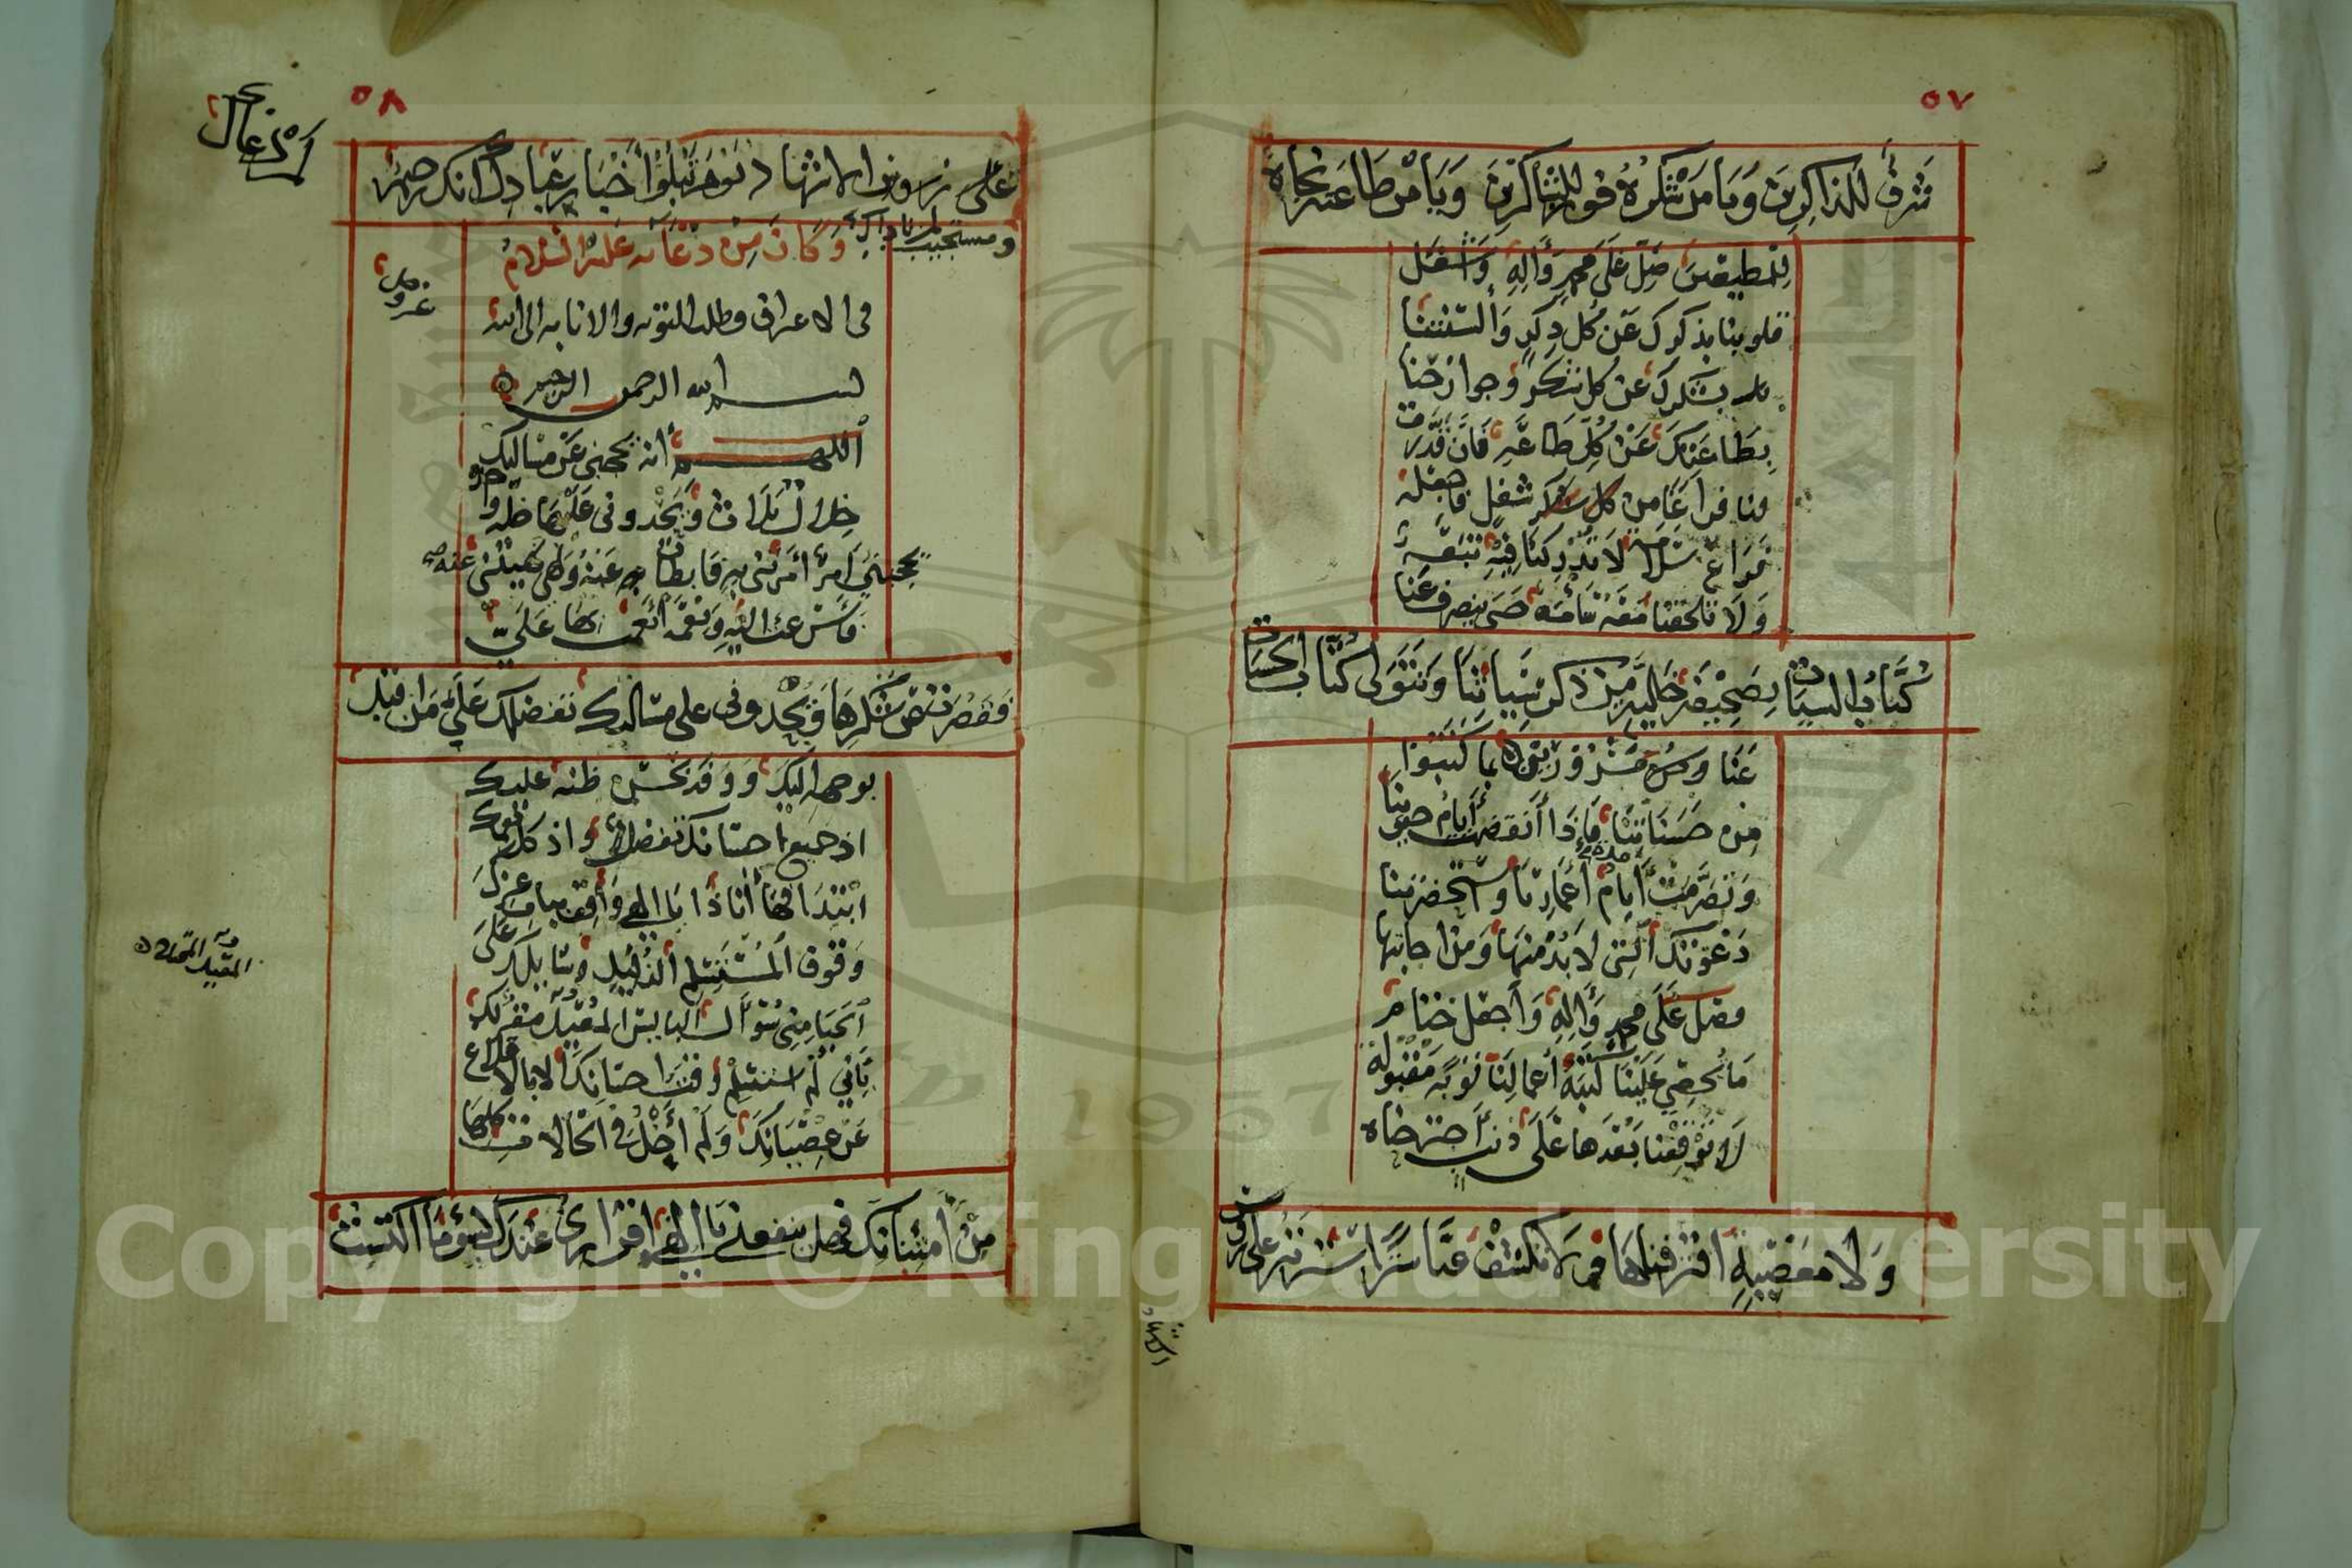 ٥٧
شرف للذاكرين ويا من شكره فوز للشاكرين ويا من طاعته نجاة
للمطيعين صل على محمد وآله واشغل
قلوبنا بذكرك عن كل ذكر وألسنتنا
بشكرك عن كل شكر وجوارحنا
بطاعتك عن كل طاعة فان قدرت
لنا فراغا من كل شغل فاجعله
فراغ سلامة لا تدركنا فيه تبعة
ولا تلحقنا معه سآمة حتى ينصرف عنا
كتاب السيئات بصحيفة خالية من ذكر سيئاتنا ويتولى كتاب الحسنات
عنا مسرورين بما كتبوا
من حسناتنا فاذا انقضت أيام حيوتنا
وتصرمت أيام أعمارنا واستحضرتنا
دعوتك التي لا بد منها ومن اجابتها
فصل على محمد وآله واجعل ختام
ما تحصي علينا كتبة أعمالنا توبة مقبولة
لا توقفنا بعدها على ذنب اجترحناه
ولا معصية اقترفناها ولا تكشف عنا سترا سترته على رؤس
الاشهاد
٥٨
على رؤس الاشهاد يوم تبلو أخبار عبادك انك رحيم
ومستجيب لمن ناداك وكان من دعائه عليه السلام
في الاعتراف وطلب التوبة والانابة الى الله
بسم الله الرحمن الرحيم
اللهم انه يحجبني عن مسألتك
خلال ثلاث ويحدوني عليها خلة واحدة
يحجبني أمر أمرت به فابطأت عنه ونهي نهيتني عنه
فأسرعت اليه ونعمة أنعمت بها علي
فقصرت في شكرها ويحدوني على مسألتك تفضلك على من اقبل
بوجهه اليك ووفد بحسن ظنه عليك
اذ جميع احسانك تفضل واذ كل نعمك
ابتداء فها أنا ذا يا الهي واقف بباب عزك
وقوف المستسلم الذليل وسائلك على
الحيا مني سؤال البايس المعيل مقر لك
بأني لم استسلم وقت احسانك الا بالاقلاع
عن عصيانك ولم أخل في الحالات كلها
من امتنانك فهل ينفعني يا الهي اقراري عندك بسوء ما اكتسبت